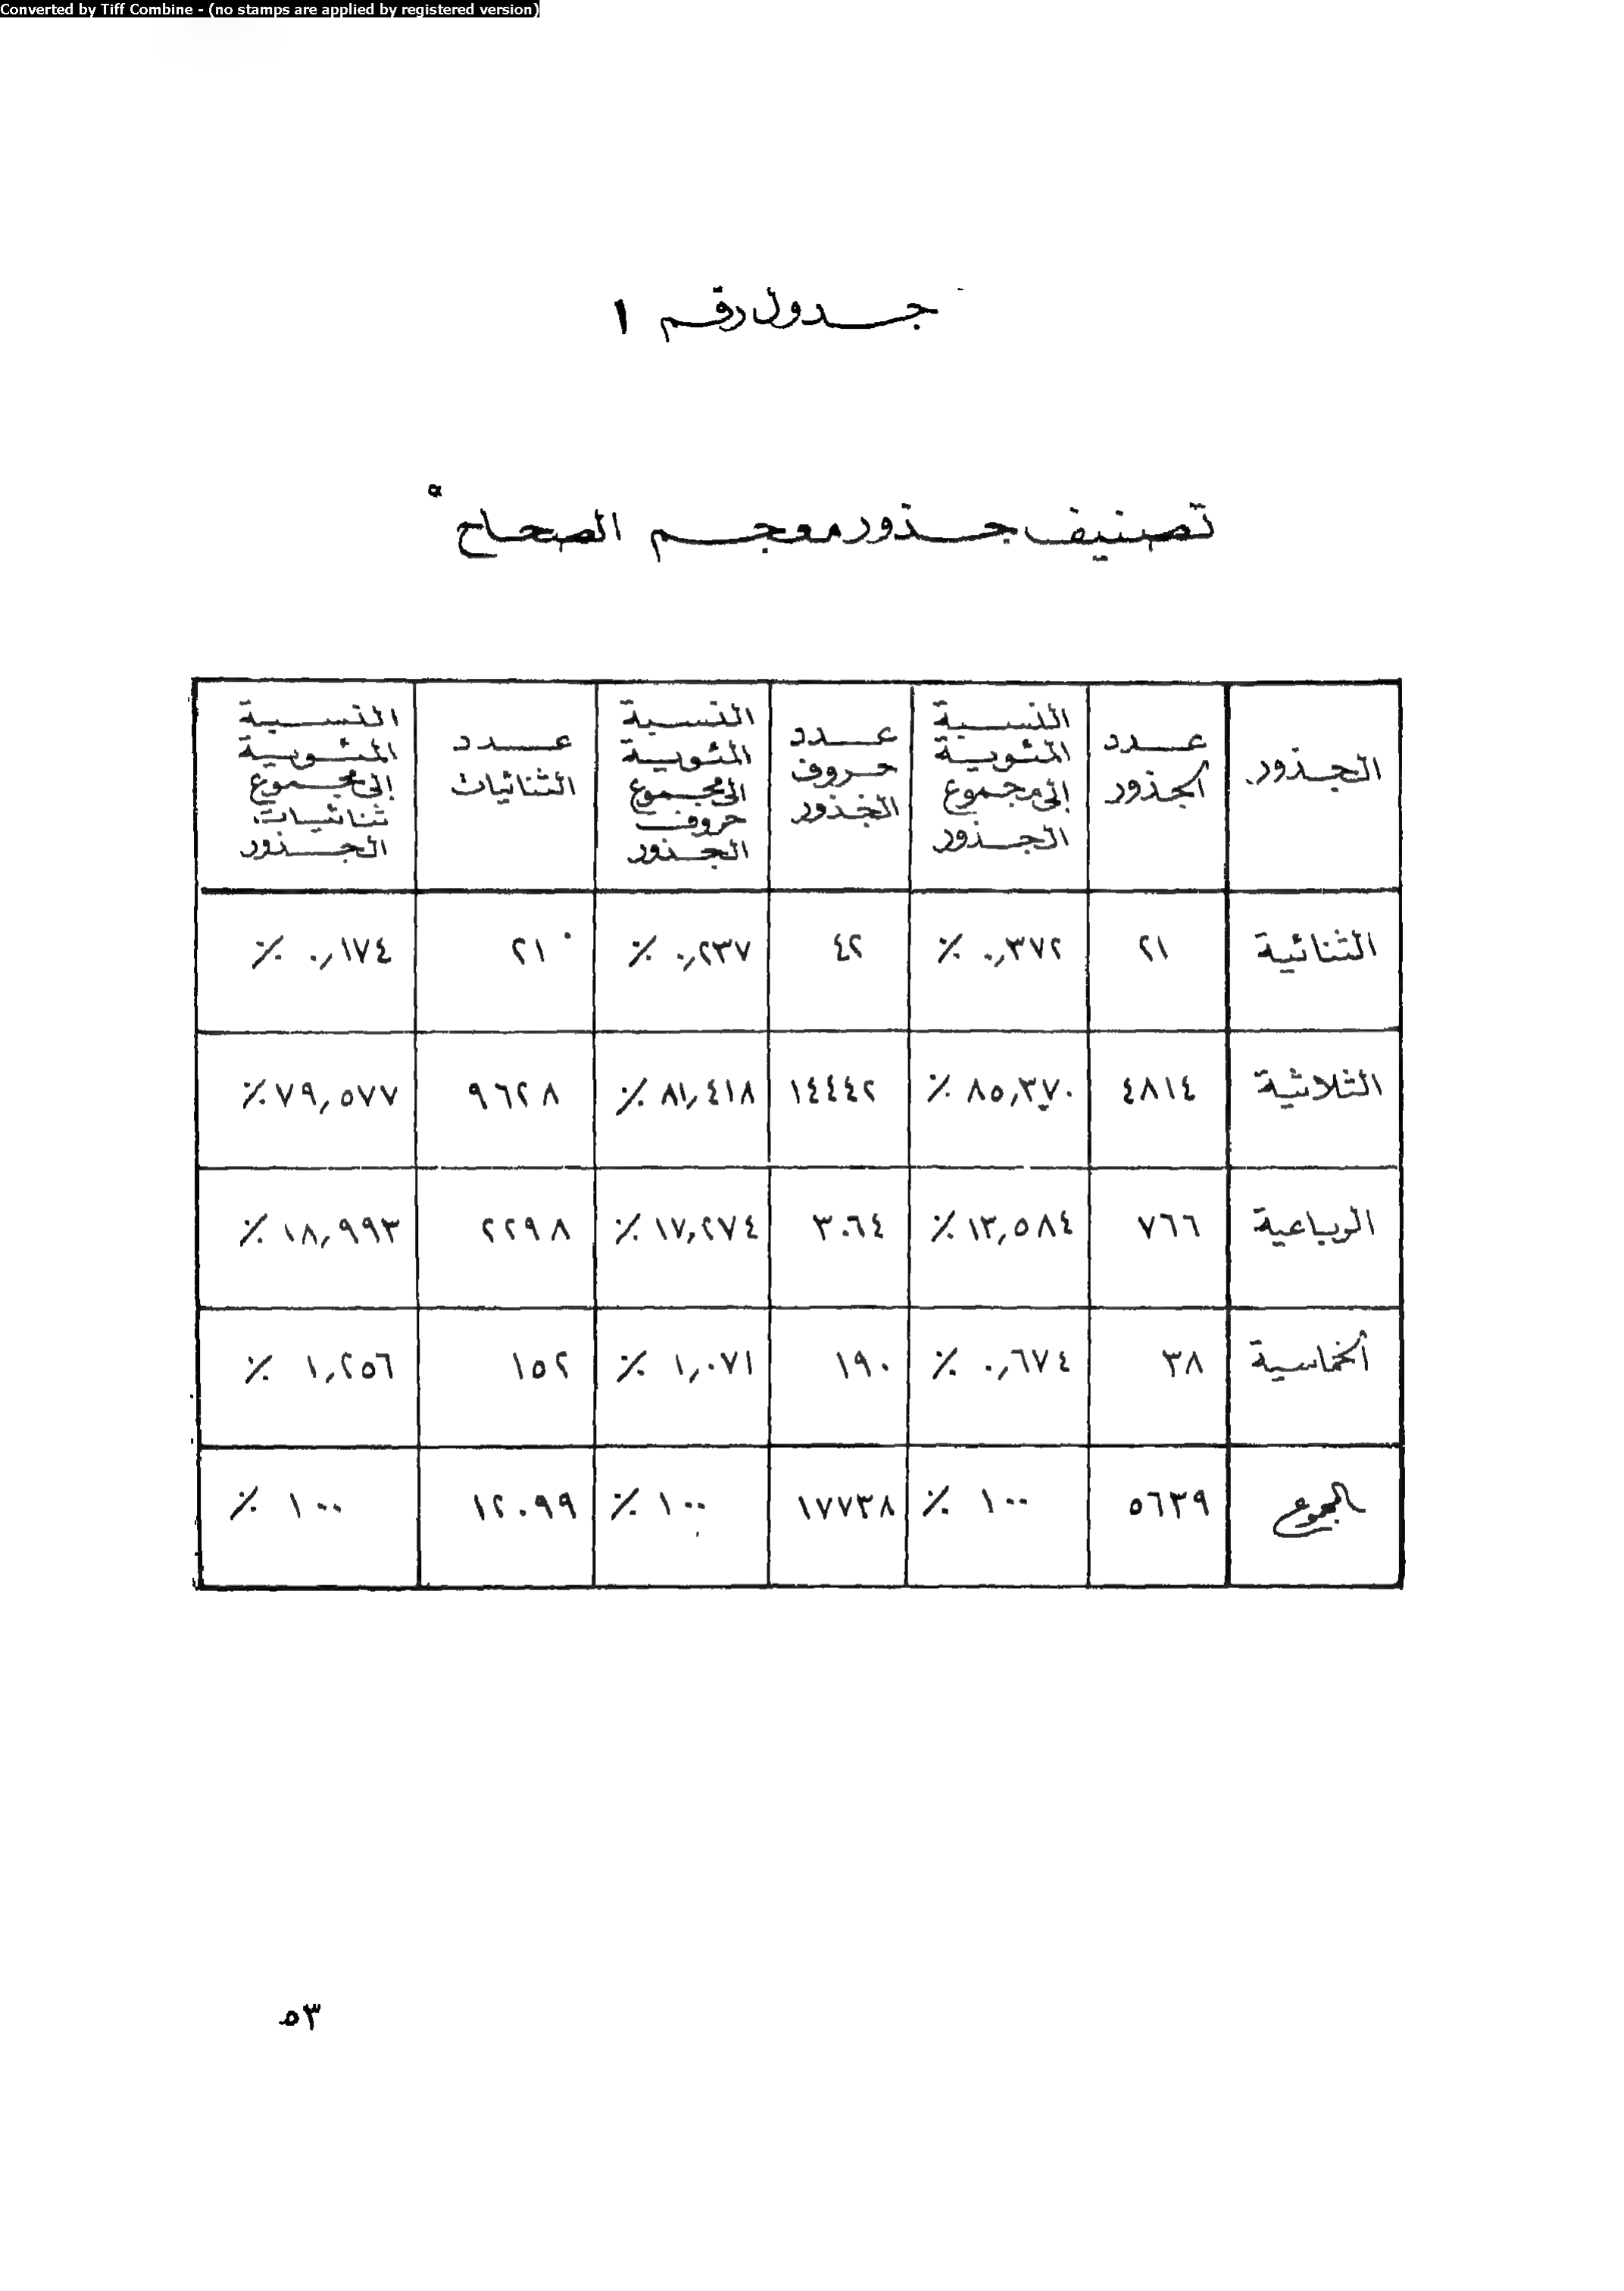 Converted by Tiff Combine - (no stamps are applied by registered version)
جدول رقم ١
تصنيف جذور معجم الصحاح
الجذور
عدد
الجذور
النسبة
المئوية
إلى مجموع
الجذور
عدد
حروف
الجذور
النسبة
المئوية
الى مجموع
حروف
الجذور
عدد
الثنائيات
النسبة
المئوية
إلى مجموع
ثنائيات
الجذور
الثنائية ٢١ ٠,٣٧٢ ٪ ٤٢ ٠,٢٣٧ ٪ ٢١ ٠,١٧٤ ٪
الثلاثية ٤٨١٤ ٨٥,٣٧٠ ٪ ١٤٤٤٢ ٨١,٤١٨ ٪ ٩٦٢٨ ٧٩,٥٧٧ ٪
الرباعية ٧٦٦ ١٣,٥٨٤ ٪ ٣٠٦٤ ١٧,٢٧٤ ٪ ٢٢٩٨ ١٨,٩٩٣ ٪
الخماسية ٣٨ ٠,٦٧٤ ٪ ١٩٠ ١,٠٧١ ٪ ١٥٢ ١,٢٥٦ ٪
المجموع ٥٦٣٩ ١٠٠ ٪ ١٧٧٣٨ ١٠٠ ٪ ١٢٠٩٩ ١٠٠ ٪
٥٣